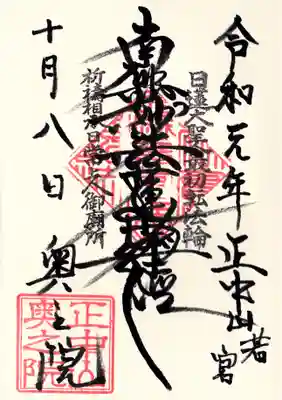 令和元年 正中山 若宮
日蓮大聖最初転法輪
南無妙法蓮華経
祈祷相承日常上人御願所
十月八日 奥之院
正中山
奥之院